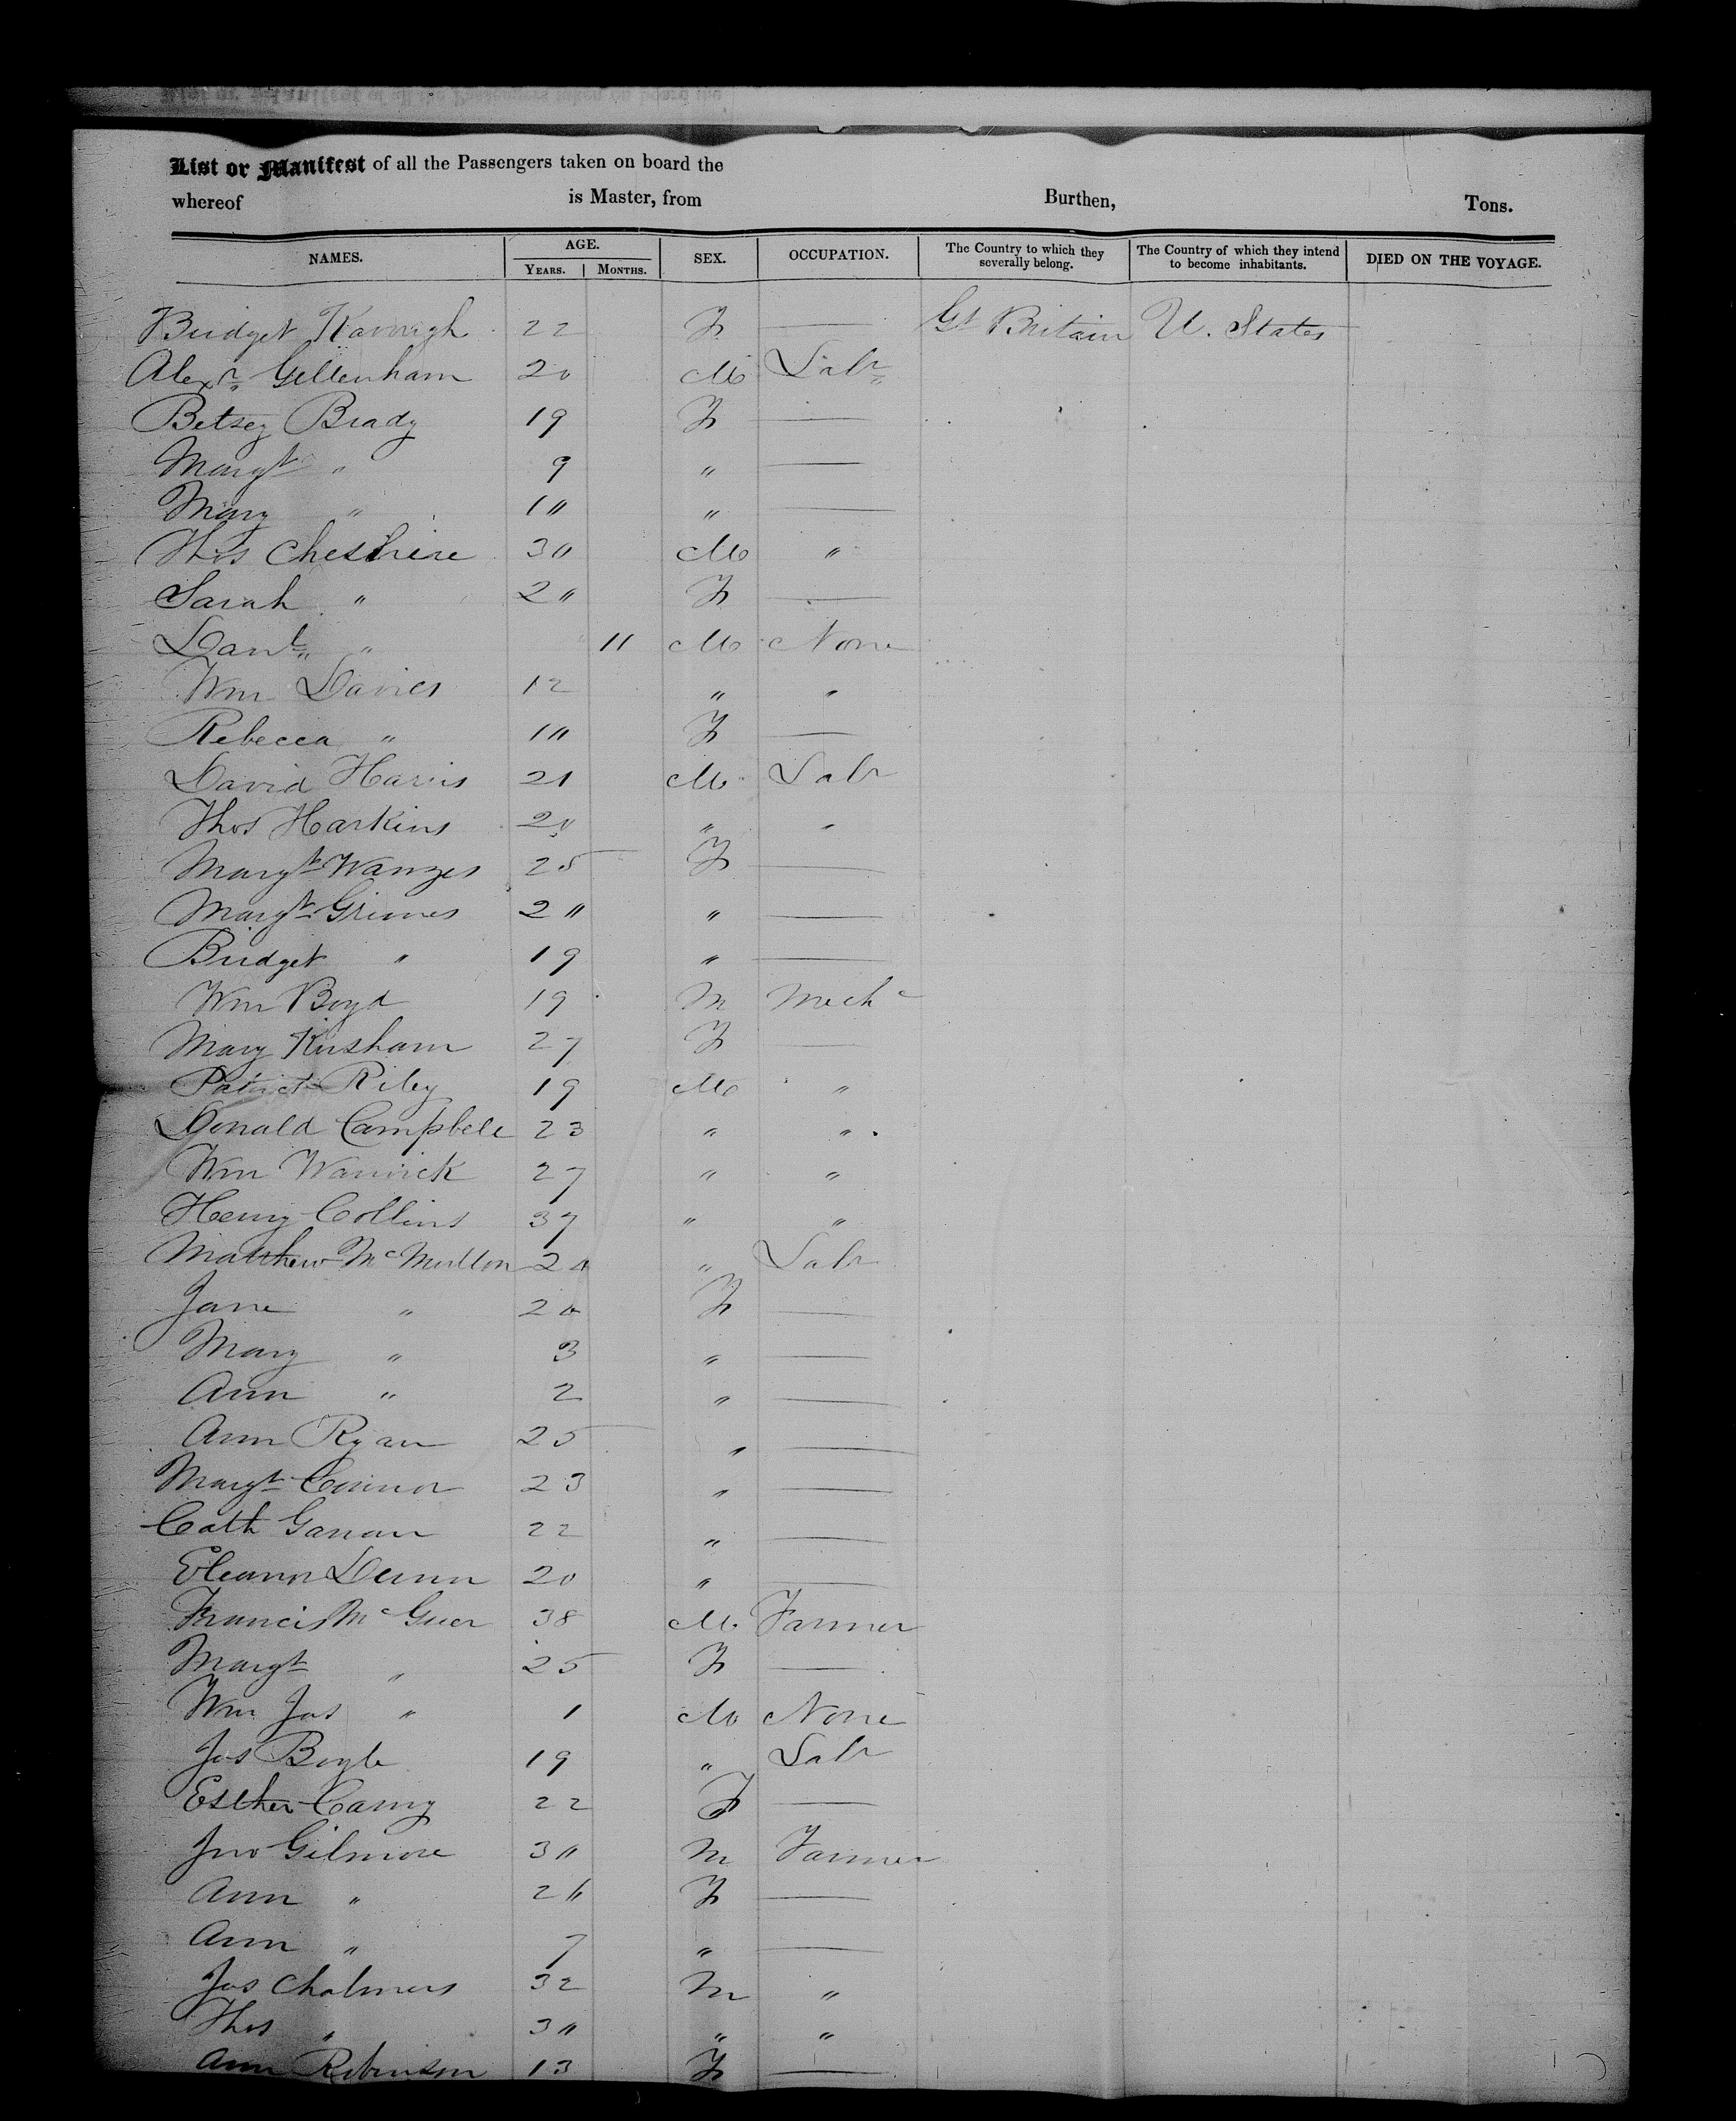 List or Manifest of all the Passengers taken on board the
whereof is Master, from Burthen, Tons.
NAMES. AGE. SEX. OCCUPATION. The Country to which they severally belong. The Country of which they intend to become inhabitants. DIED ON THE VOYAGE.
YEARS. MONTHS.
Bridget Kavnagh 22 F — Gt Britain U. States
Alexr Gellenham 20 M Labr
Betsey Brady 19 F —
Margt " 9 " —
Mary " 1" " —
Thos Cheshire 3" M "
Sarah " 2" F —
Danl " 11 M None
Wm Davies 12 " "
Rebecca " 1" F —
David Harris 21 M Labr
Thos Harkins 20 " "
Margt 25 F —
Margt Grimes 2" " —
Bridget " 19 " —
Wm Boyd 19 M Mechc
Mary Kirsham 27 F —
Patrick Riley 19 M "
Donald Campbell 23 " "
Wm Warwick 27 " "
Henry Collins 37 " "
Matthew McMullon 2" " Labr
Jane " 20 F —
Mary " 3 " —
Ann " 2 " —
Ann Ryan 25 " —
Margt Connor 23 " —
Cath 22 " —
Eleanor Dunn 20 " —
Francis McGuer 38 M Farmer
Margt " 25 F —
Wm Jas " 1 M None
Jas Boyle 19 " Labr
Esther 22 F —
Jno Gilmore 3" M Farmer
Ann " 26 F —
Ann " 7 " —
Jas Chalmers 32 M "
Thos " 3" " "
Ann Robinson 13 F —